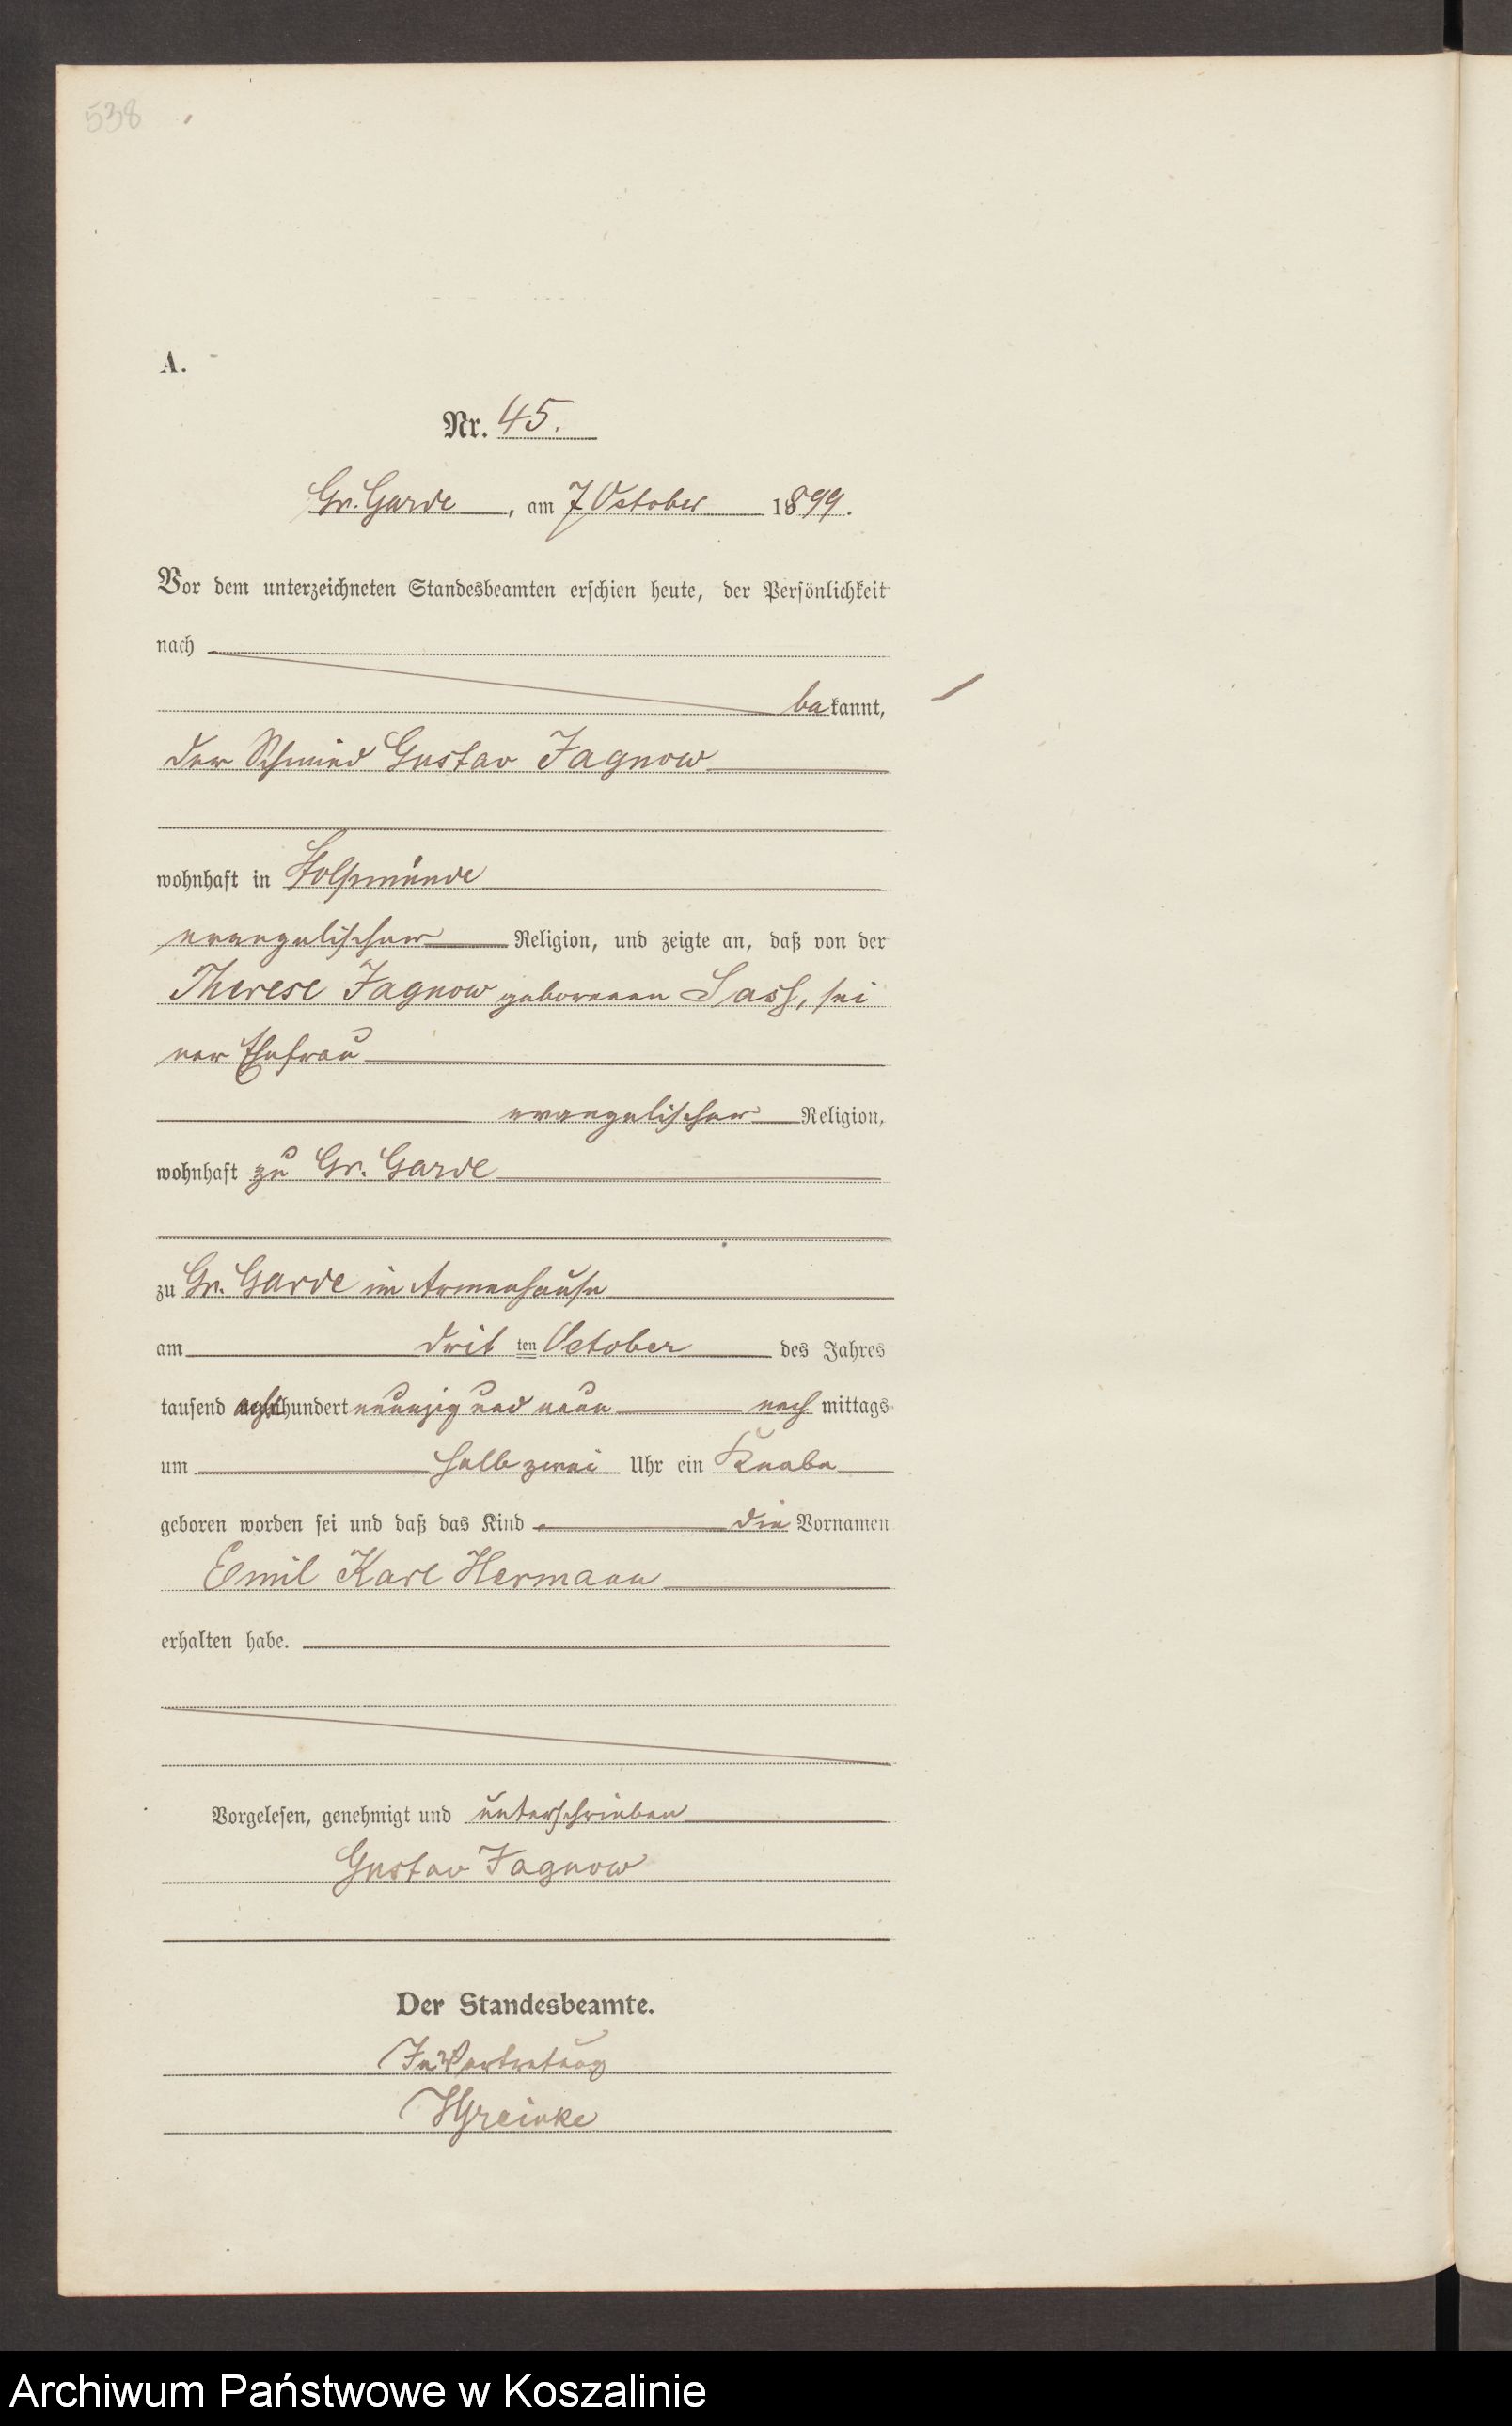 538
A.
Nr. 45.
Gr. Garde, am 7 October 1899.
Vor dem unterzeichneten Standesbeamten erschien heute, der Persönlichkeit
nach
bekannt,
der Schmied Gustav Jagnow
wohnhaft in Stolpmünde
evangelischer Religion, und zeigte an, daß von der
Therese Jagnow geborenen Sass, sei
ner Ehefrau
evangelischer Religion,
wohnhaft zu Gr. Garde
zu Gr. Garde im Armenhause
am drit ten October des Jahres
tausend achthundert neunzig und neun nach mittags
um halb zwei Uhr ein Knabe
geboren worden sei und daß das Kind die Vornamen
Emil Karl Hermann
erhalten habe.
Vorgelesen, genehmigt und unterschrieben
Gustav Jagnow
Der Standesbeamte.
In Vertretung
Archiwum Państwowe w Koszalinie